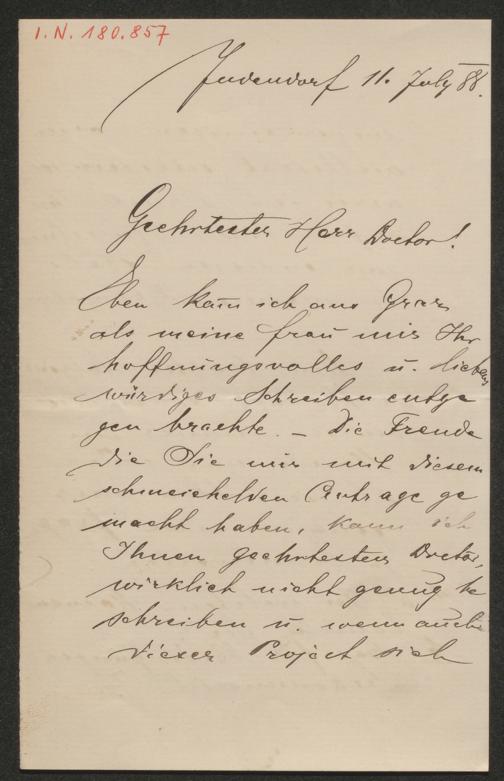 I.N. 180.857
Judendorf 11. July 88.
Geehrtester Herr Doctor!
Eben kam ich aus Graz
als meine Frau mir Ihr
hoffnungsvolles u. liebens
würdiges Schreiben entge
gen brachte. – Die Freude
die Sie mir mit diesem
schmeichelden Antrage ge
macht haben, kann ich
Ihnen geehrtester Doctor,
wirklich nicht genug be
schreiben u. wenn auch
dieser Project sich